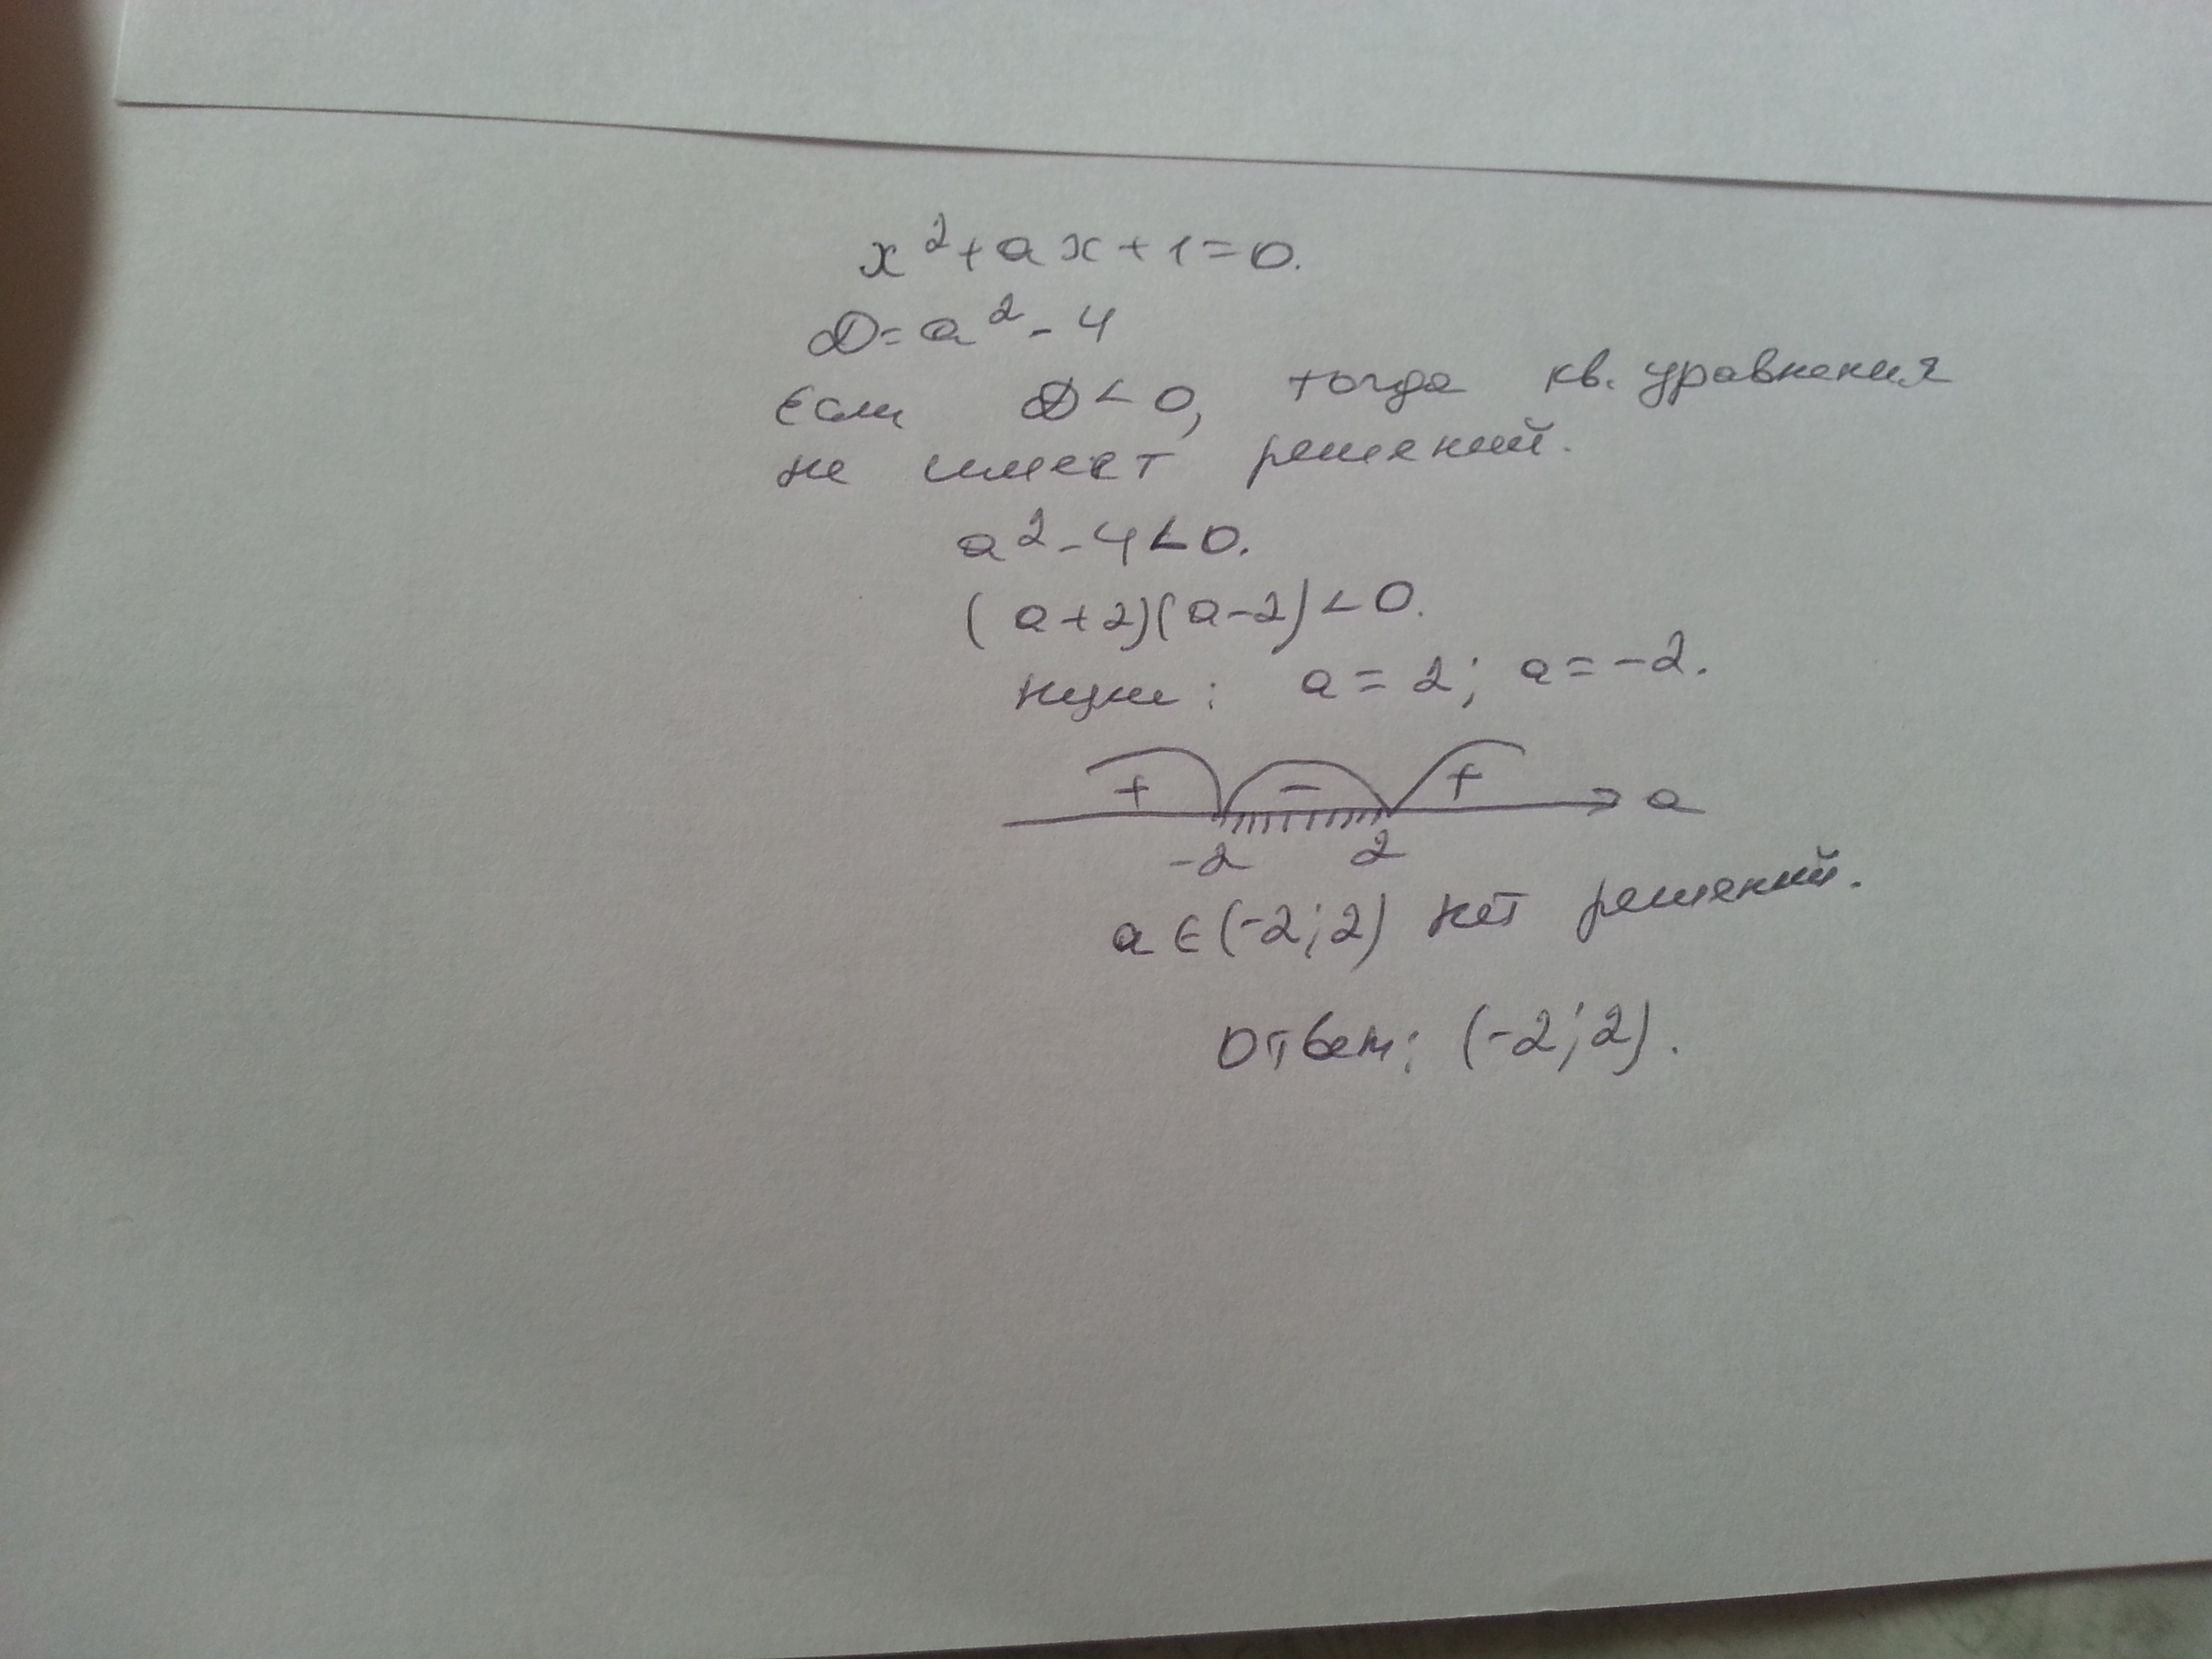 x² + ax + 1 = 0.
D = a² - 4
Если D < 0, тогда кв. уравнения
не имеет решений.
a² - 4 < 0.
(a+2)(a-2) < 0.
нули: a = 2; a = -2.
+ - + a
-2 2
a ∈ (-2; 2) нет решений.
Ответ: (-2; 2).